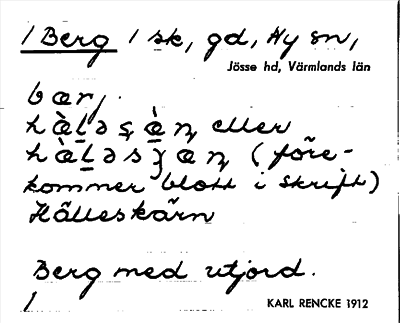 1 Berg 1 sk, gd, Ny sn,
Jösse hd, Värmlands län
bærj.
eller
(före-
kommer blott i skrift)
Hälleskärn
Berg med utjord.
1
KARL RENCKE 1912